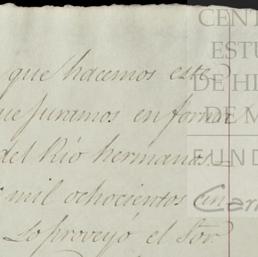 que hacemos este
que juramos en forma
del Rio hermanos
mil ochocientos
Lo proveyó el Sor
CENT
ESTU
DE HI
DE M
FUND
Car